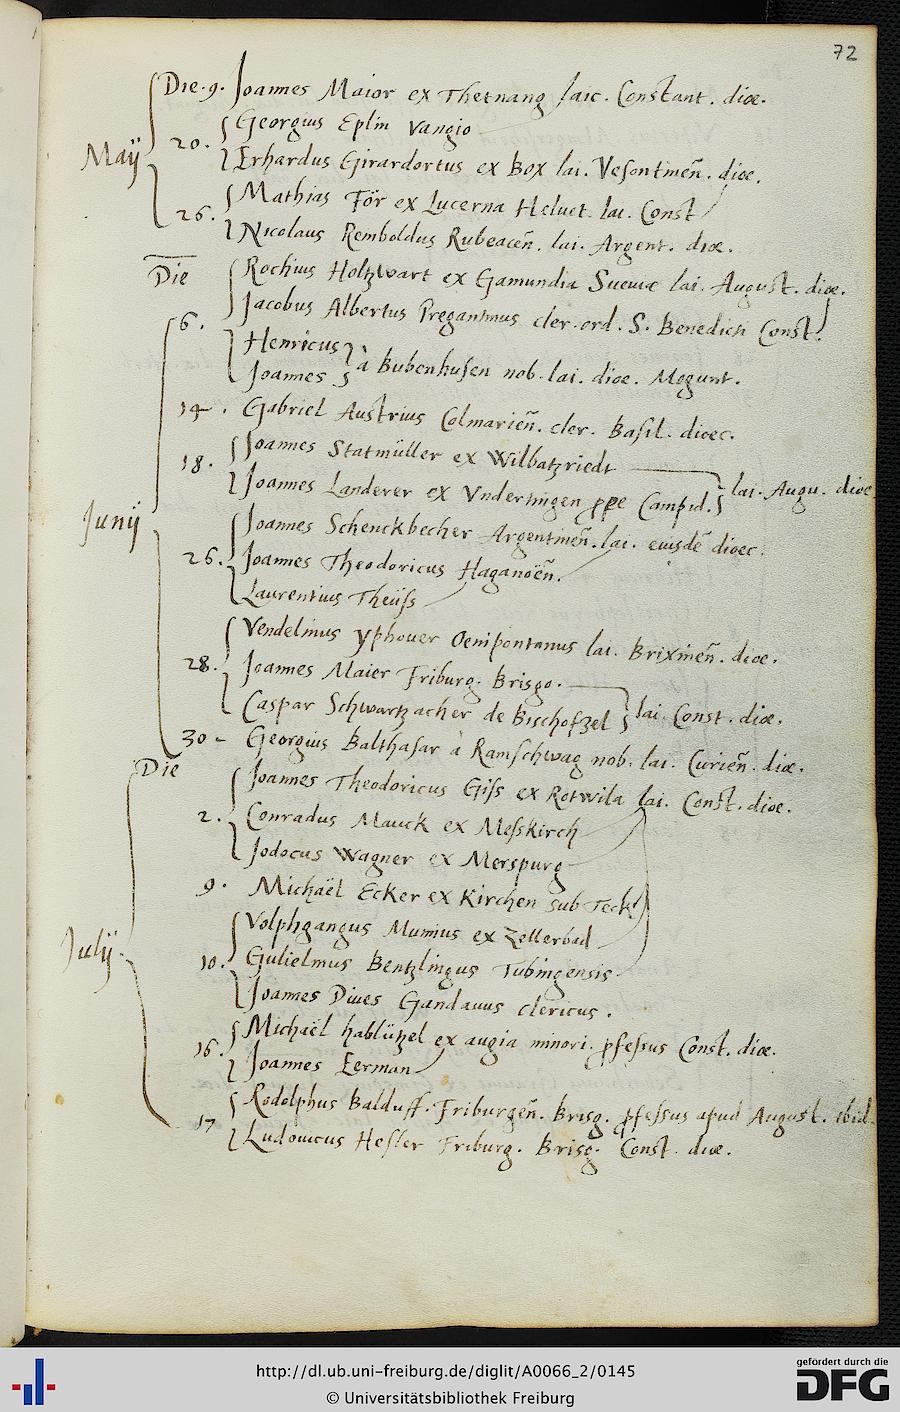 72
Die. 9. Joannes Maior ex Thetnang laic. Constant. dioe.
Maÿ 20. Georgius Eplin Vangio
Erhardus Girardortus ex Box lai. Vesontineñ. dioe.
26. Mathias För ex Lucerna Heluet. lai. Const
Nicolaus Remboldus Rubeaceñ. lai. Argent. dioe.
Die Rochius Holtzwart ex Gamundia Sueuiæ lai. August. dioe.
6. Jacobus Albertus Pregantinus cler. ord. S. Benedicti Const.
Henricus
Joannes à Bubenhusen nob. lai. dioe. Mogunt.
14. Gabriel Austrius Colmarieñ. cler. Basil. dioec.
18. Joannes Statmüller ex Wilbatzriedt
Joannes Landerer ex Undertingen ppe Campid. lai. Augu. dioe
Junÿ Joannes Schenckbecher Argentineñ. lai. eiusdē dioec.
26. Joannes Theodoricus Haganoëñ.
Laurentius Theüss
Vendelinus yphouer Oenipontanus lai. Brixineñ. dioe.
28. Joannes Maier Friburg. Brisgo.
Caspar Schwartzacher de Bischofzel lai. Const. dioe.
30 - Georgius Balthasar à Ramschwag nob. lai. Curieñ. dioe.
Die Joannes Theodoricus Giss ex Rotwila lai. Const. dioe.
2. Conradus Mauck ex Messkirch
Jodocus Wagner ex Merspurg
9. Michaël Ecker ex Kirchen sub Teck
Julÿ Volphgangus Mumius ex Zellerbad
10. Gulielmus Bentzlingus Tubingensis
Joannes Diues Gandauus clericus.
16. Michaël hablützel ex augia minori. pfessus Const. dioe.
Joannes Eerman
17 Rodolphus Balduff. Friburgeñ. Brisg. pfessus apud August. ibid.
Ludouicus Hesler Friburg. Brisg. Const. dioe.
http://dl.ub.uni-freiburg.de/diglit/A0066_2/0145
© Universitätsbibliothek Freiburg
gefördert durch die
DFG